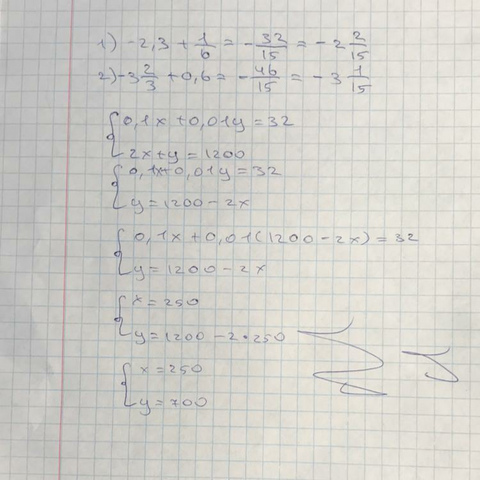 1) -2,3 + 1/6 = - 32/15 = - 2 2/15
2) -3 2/3 + 0,6 = - 46/15 = - 3 1/15
{ 0,1x + 0,01y = 32
2x + y = 1200
{ 0,1x + 0,01y = 32
y = 1200 - 2x
{ 0,1x + 0,01(1200 - 2x) = 32
y = 1200 - 2x
{ x = 250
y = 1200 - 2 • 250
{ x = 250
y = 700